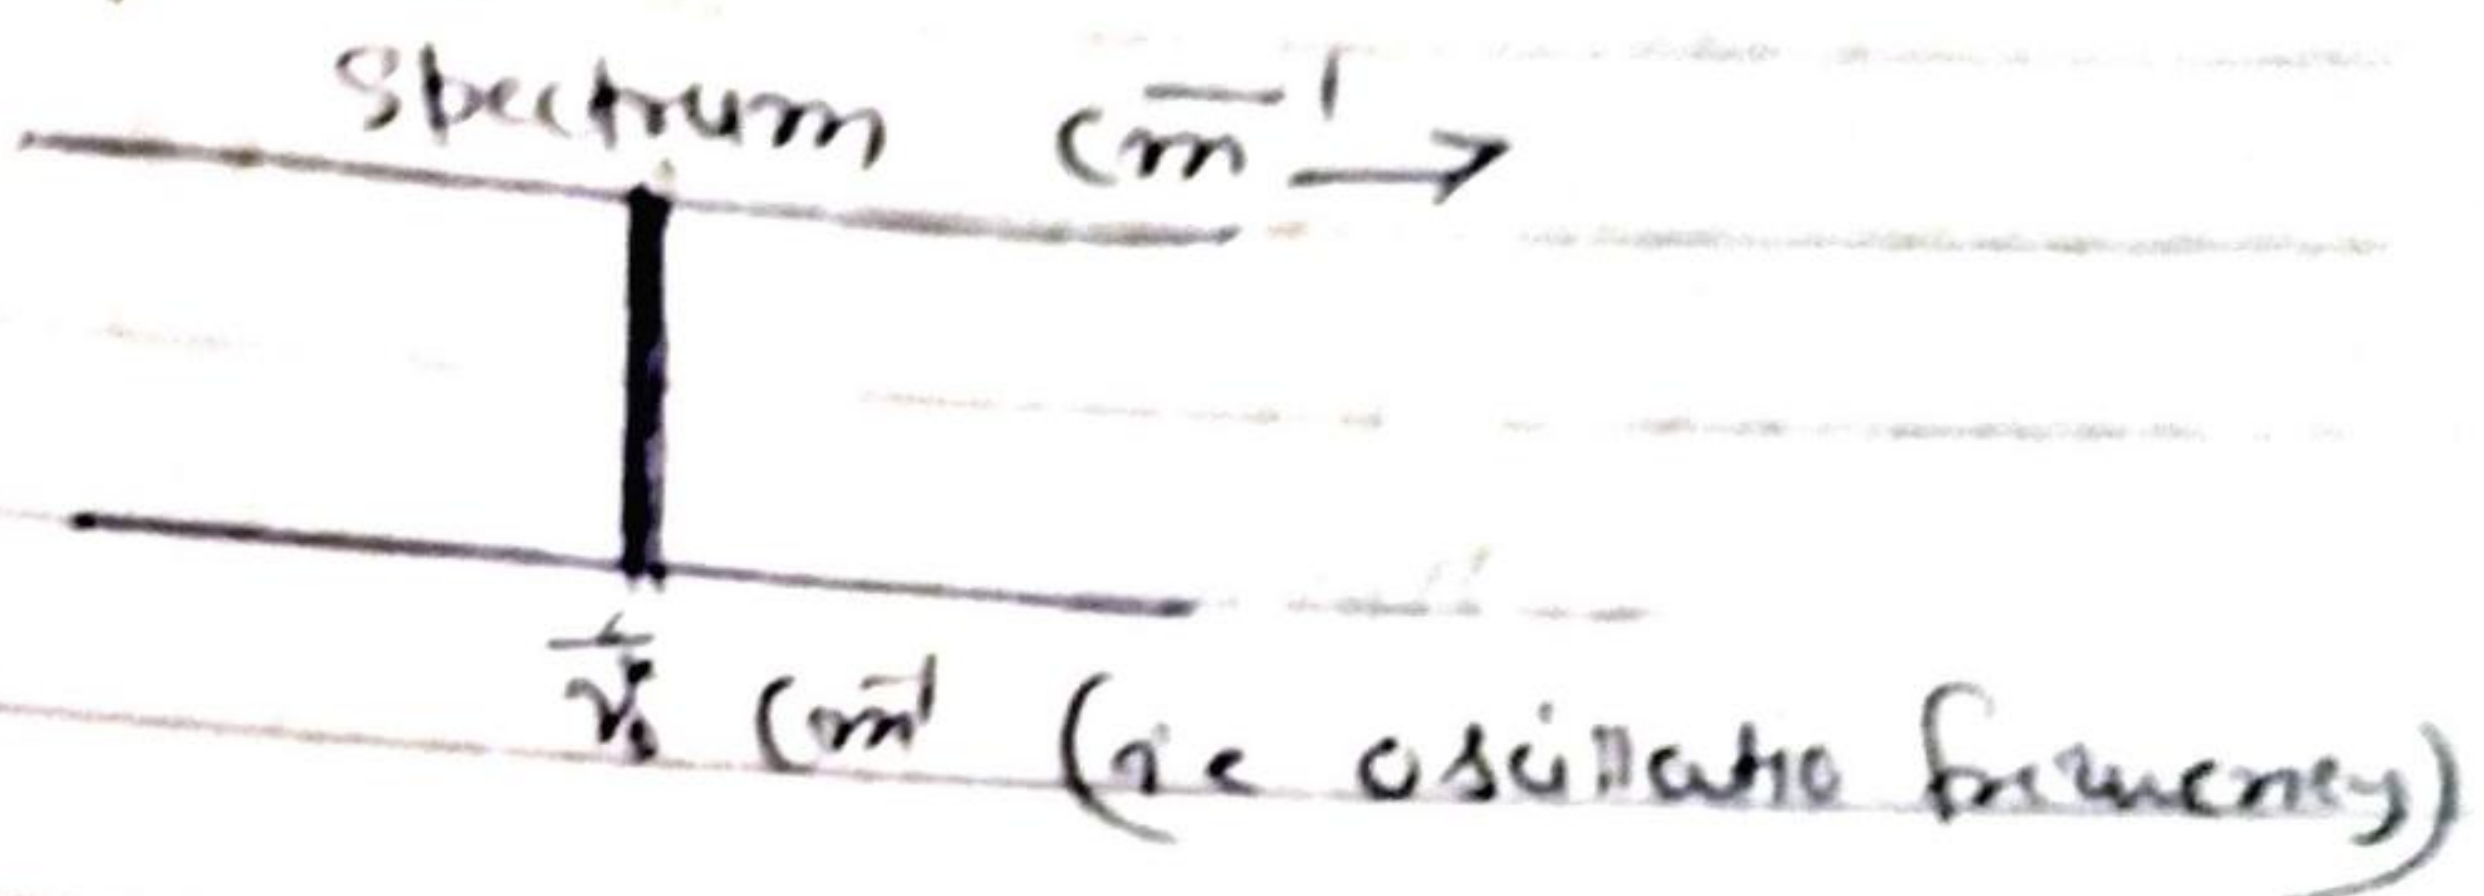 Spectrum cm⁻¹ →
ν̄₀ cm⁻¹ (ie oscillatio frequency)